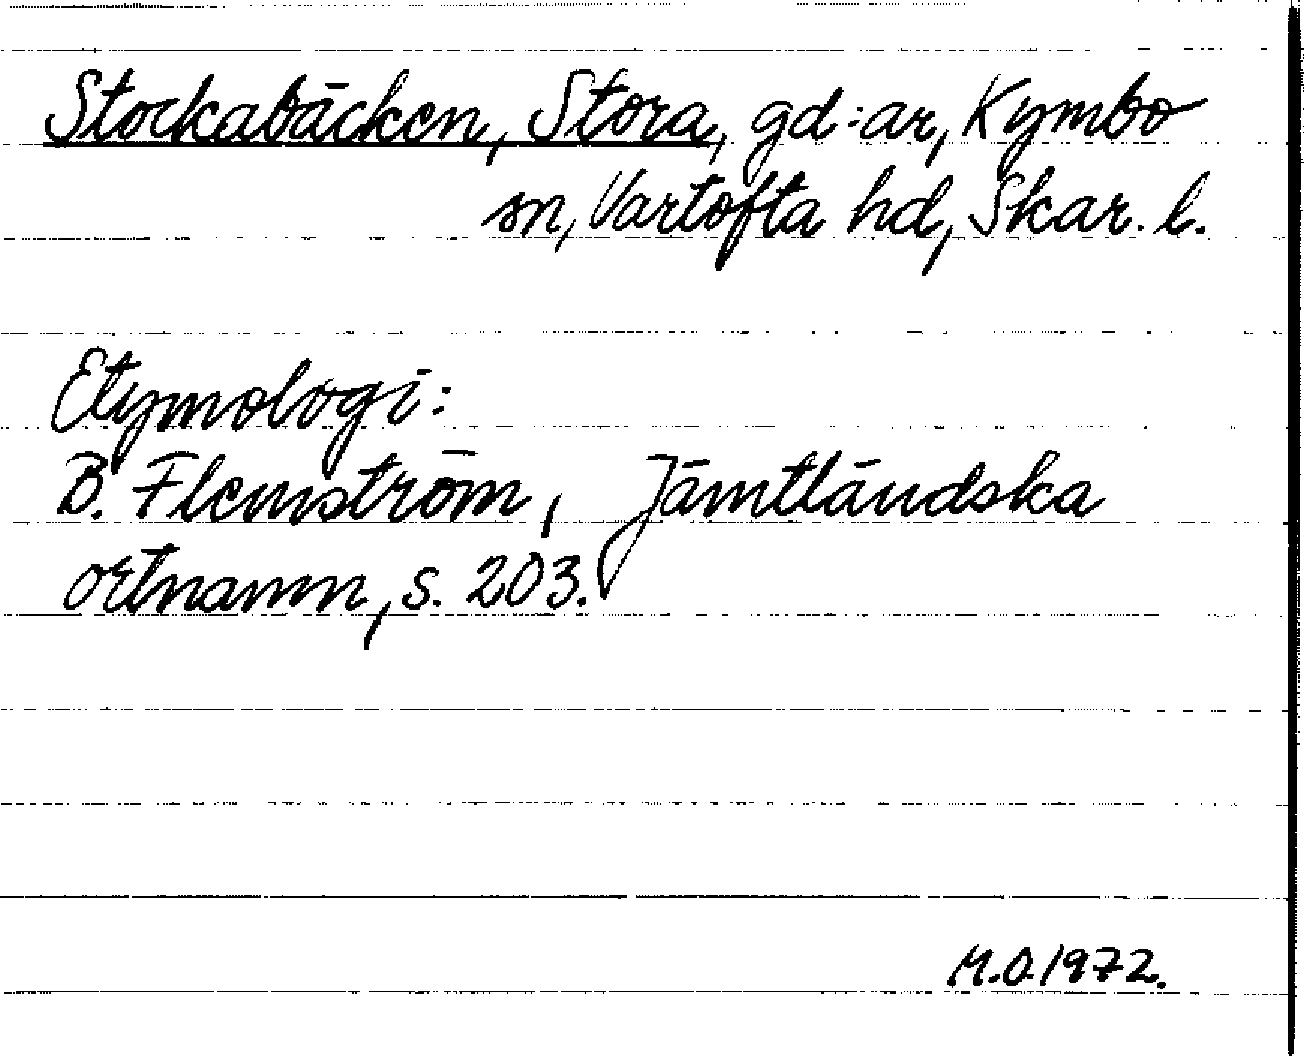 Stockabäcken, Stora, gd:ar, Kymbo
sn, Vartofta hd, Skar. l.
Etymologi:
B. Flemström, Jämtländska
ortnamn, s. 203.
M.O. 1972.